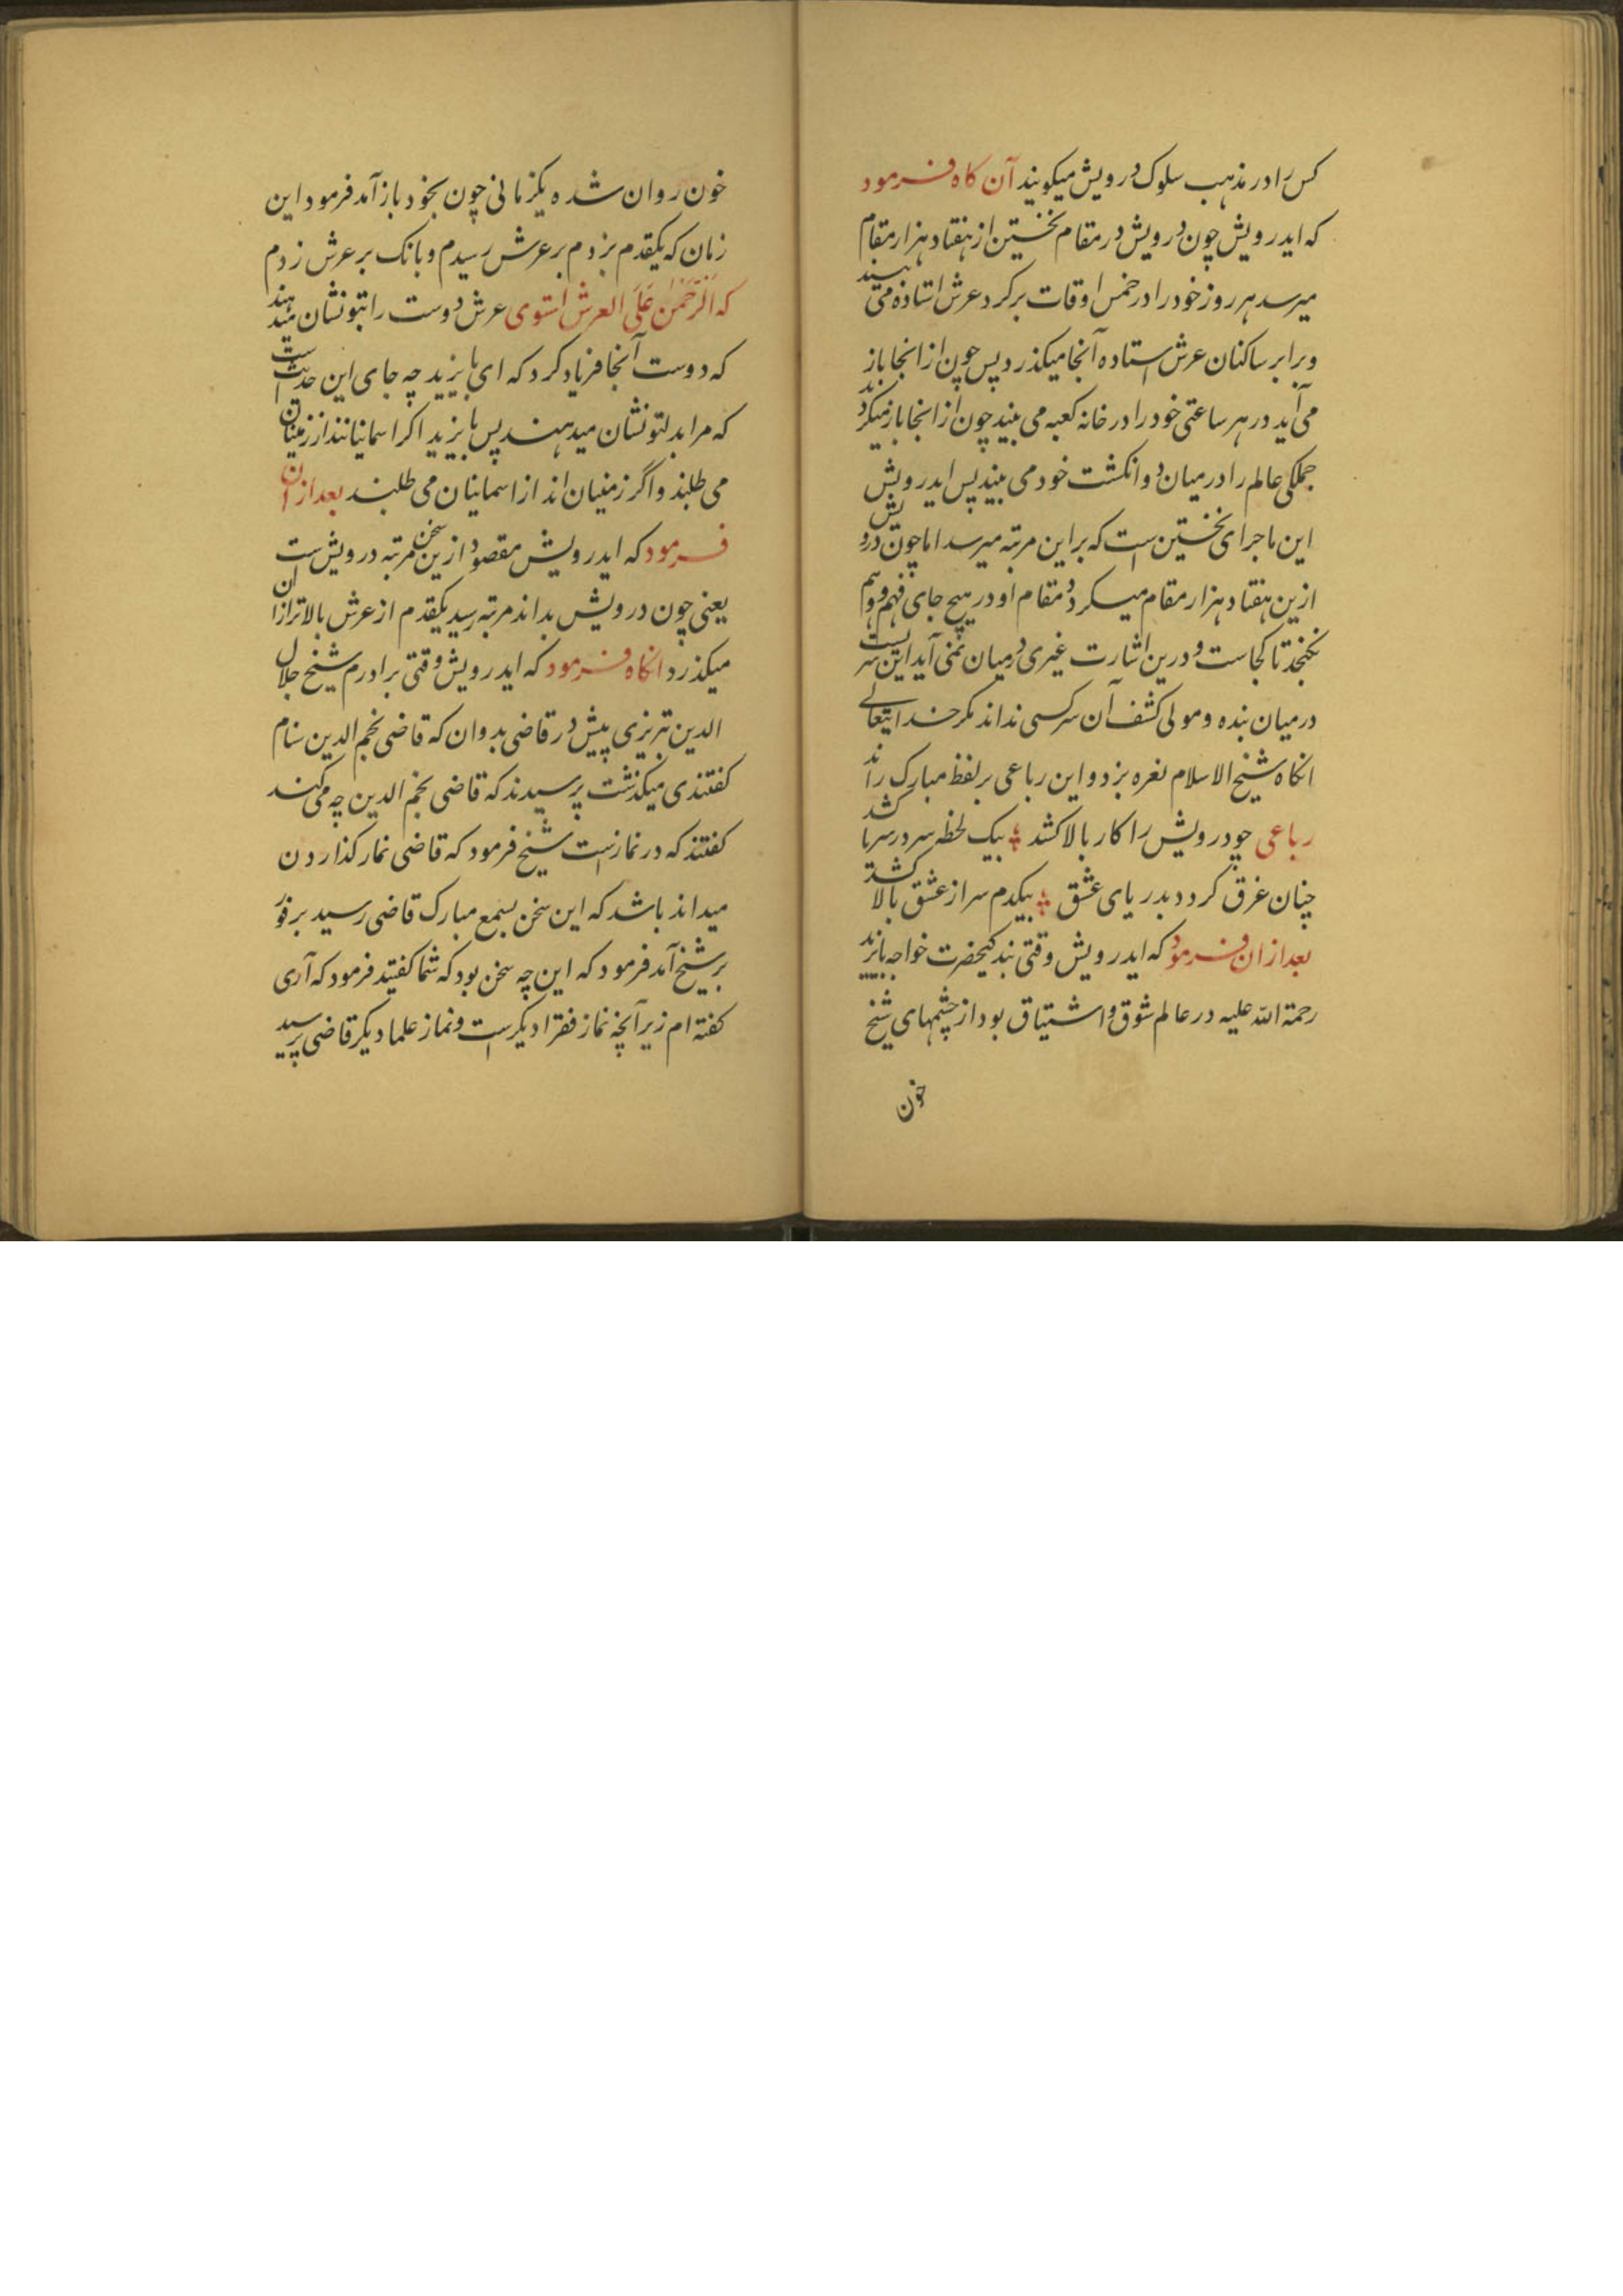 کس را در مذهب سلوک درویش میکویند آن کاه فرمود
که ایدرویش چون درویش در مقام نخستین از هفتاد هزار مقام
میرسد هر روز خود را در خمس اوقات برکرد عرش استاده می بیند
و برابر ساکنان عرش استاده آنجا میکذرد پس چون از انجا باز
می آید در هر ساعتی خود را در خانه کعبه می بیند چون از انجا باز میکردد
جملکی عالم را در میان دو انکشت خود می بیند پس ایدرویش
این ماجرای نخستین است که بر این مرتبه میرسد اما چون درویش
ازین هفتاد هزار مقام میکردد مقام او در هیچ جای فهم و وهم
نکنجد تا کجاست و درین اشارت غیری درمیان نمی آید این سریست
درمیان بنده و مولی کشف آن سر کسی نداند مکر خدایتعالے
انکاه شیخ الاسلام نعره بزد و این رباعی بر لفظ مبارک راند
رباعی چو درویش را کار بالا کشد ؛ بیک لحظه سر در سریا کشد
چنان غرق کردد بدریای عشق ؛ بیکدم سر از عشق بالا کشد
بعد ازان فرمود که ایدرویش وقتی بندکیحضرت خواجه بایزید
رحمة الله علیه در عالم شوق و اشتیاق بود از چشمهای شیخ
خون
خون روان شده یکزمانی چون بخود باز آمد فرمود این
زمان که یکقدم بزدم بر عرش رسیدم و بانک بر عرش زدم
که اَلرَّحْمٰن عَلَی العرش استوی عرش دوست را بتو نشان میدهند
که دوست آنجا فریاد کرد که ای بایزید چه جای این حدیث است
که مرا بدلتو نشان میدهند پس بایزید اکر اسمانیانند از زمینیان
می طلبند و اگر زمنیان اند از اسمانیان می طلبند بعد ازان
فرمود که ایدرویش مقصود ازین سخن مرتبه درویش ست
یعنی چون درویش بداند مرتبه رسید یکقدم از عرش بالاتر ازان
میکذرد انکاه فرمود که ایدرویش وقتی برادرم شیخ جلال
الدین تبریزی پیش در قاضی بدوان که قاضی نجم الدین سنام
کفتندی میکذشت پرسیدند که قاضی نجم الدین چه می کند
کفتند که در نمازست شیخ فرمود که قاضی نماز کذاردن
میداند باشد که این سخن بسمع مبارک قاضی رسید بر فور
بر شیخ آمد فرمود که این چه سخن بود که شما کفتید فرمود که آری
کفته ام زیرآنچه نماز فقرا دیکرست و نماز علما دیکر قاضی پرسید